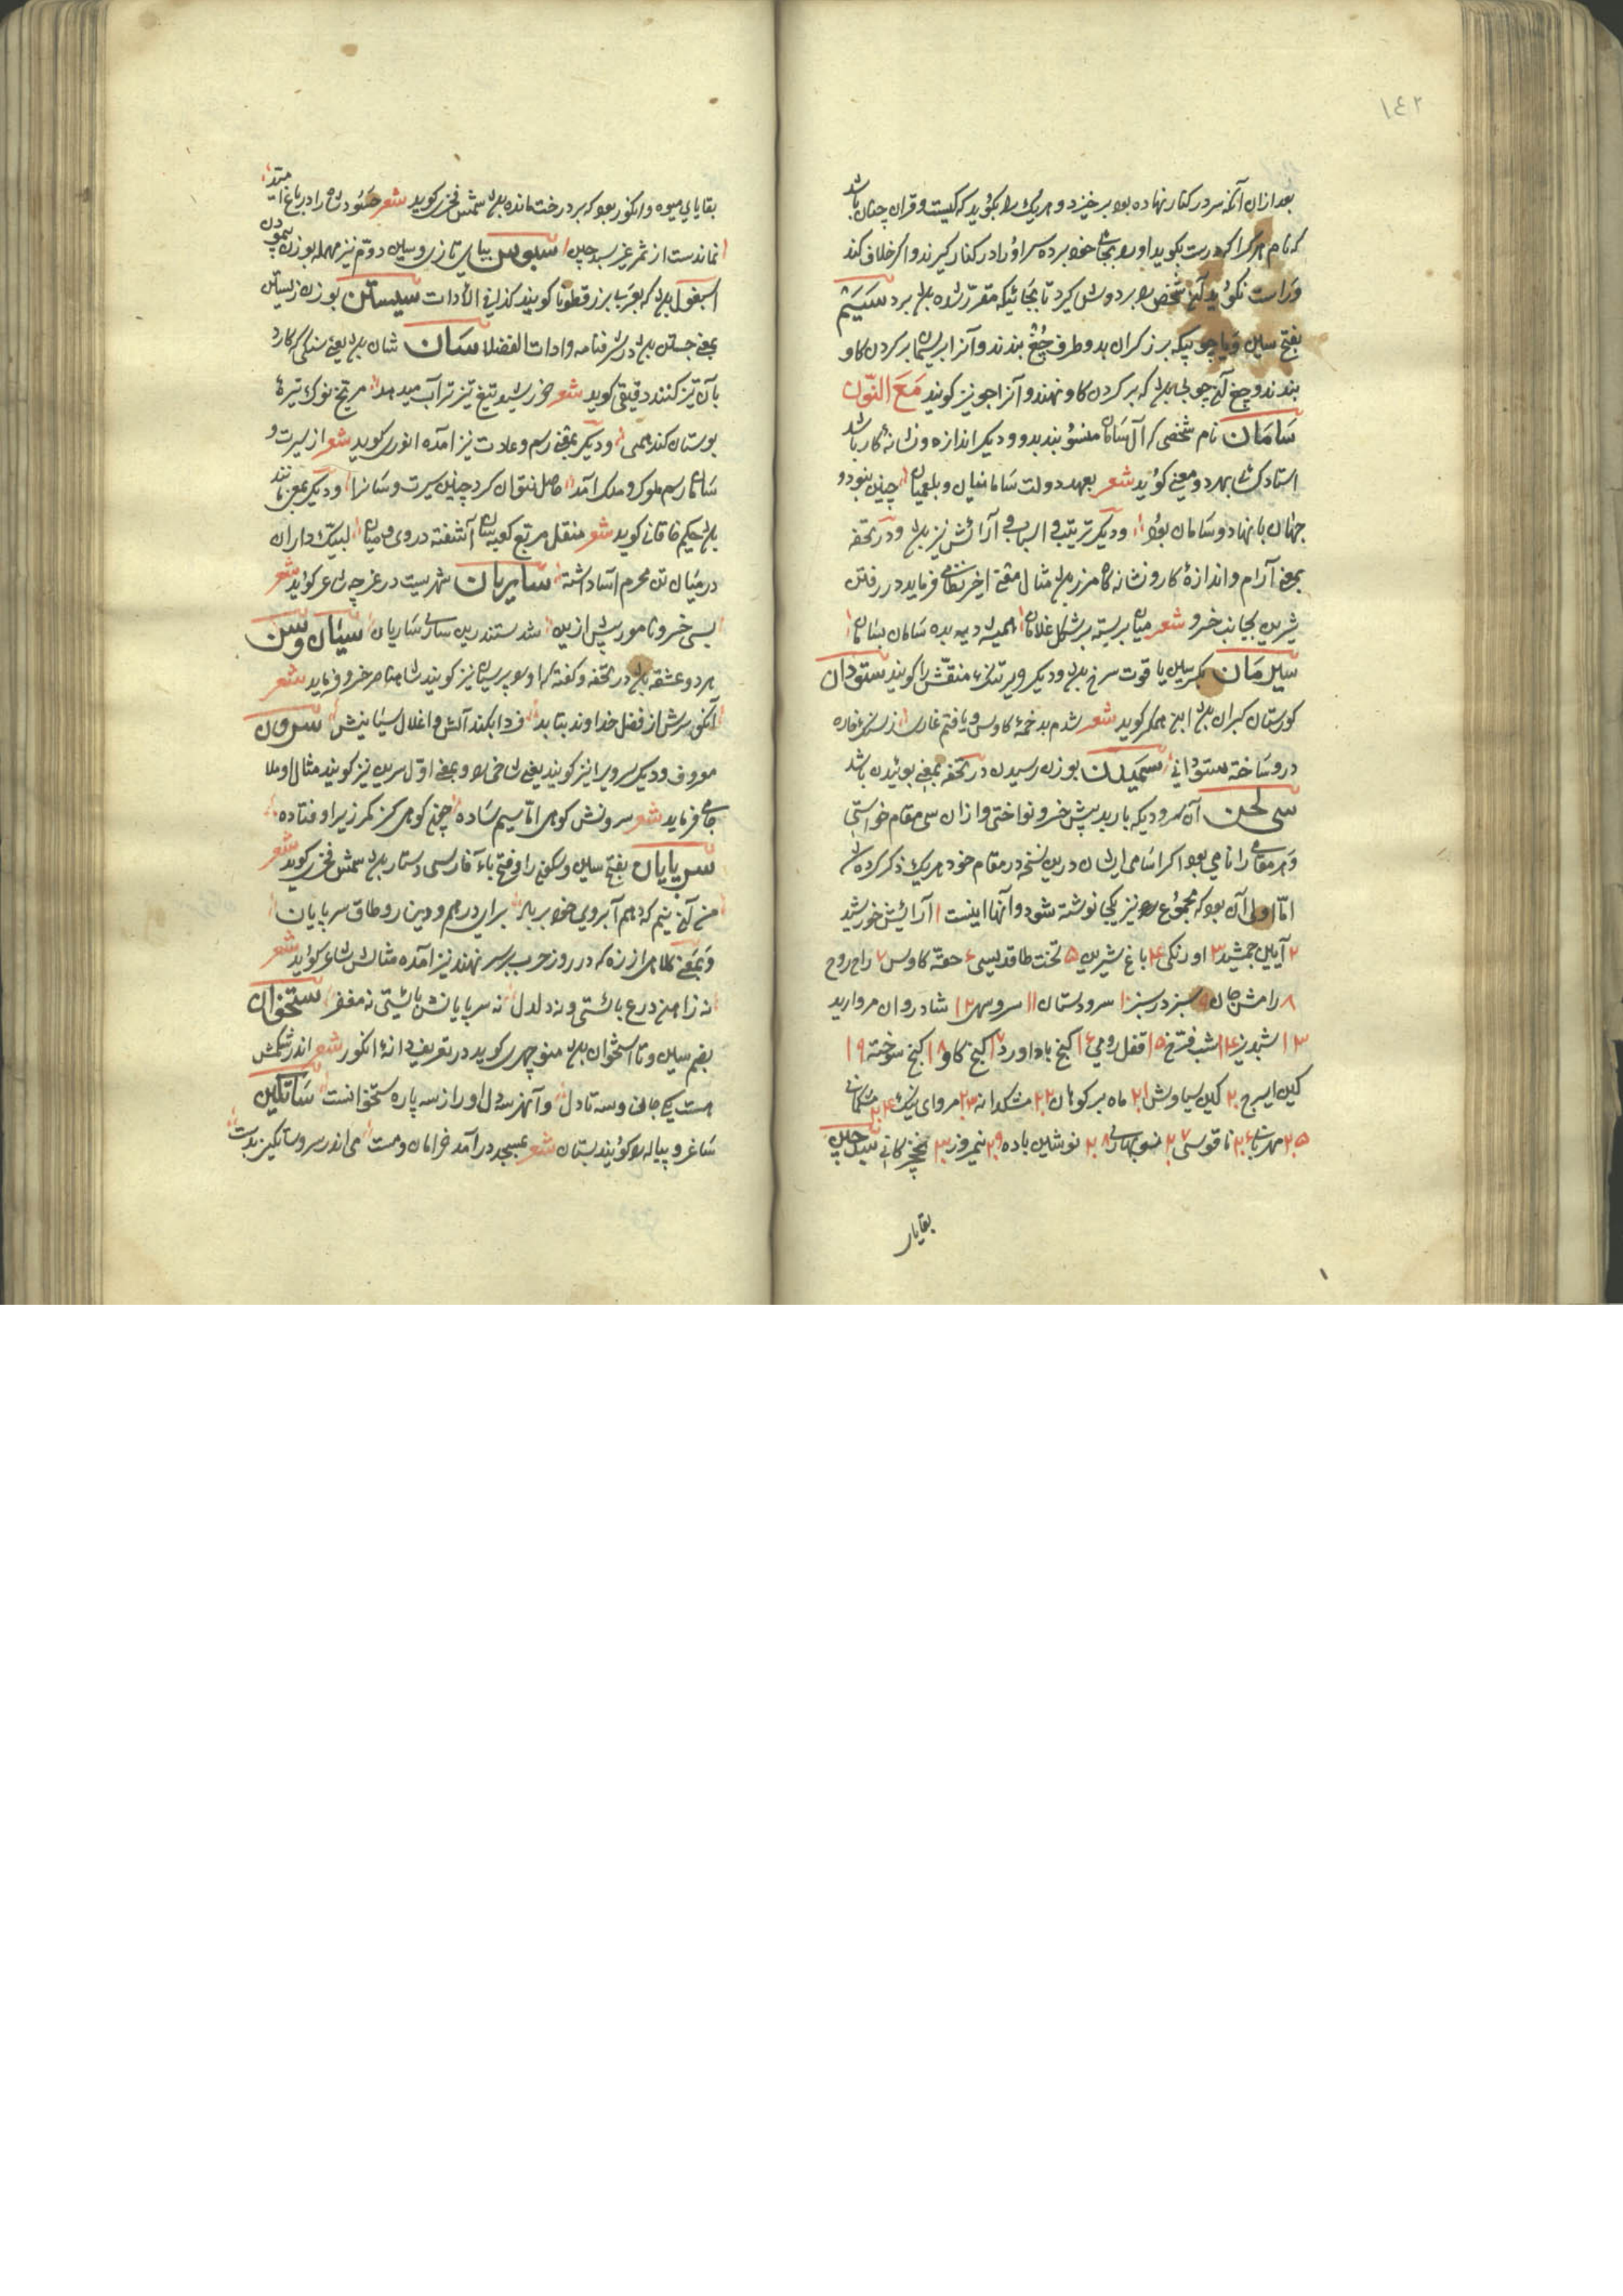 ١٤٢
بعد ازان آنکه سر در کنار نهاده بود بر خیزد و هر یک را بکوید که کیست و قران چنان باشد
که نام هر کرا که درست بکوید او را بجای خود برده سر او را در کنار کیرند و اکر خلاف کند
و راست نکوید آن شخص را بر دوش کیرد تا بجائیکه مقرر شده باشد برد سَیَم
بفتح سین و یا چوبیکه برزکران بدو طرف جُغ بندند و آنرا بریسمان بر کردن کاو
بندند و جغ آن چوبی باشد که بر کردن کاو نهند و آنرا جو نیز کویند مَعَ النّون
سَامَان نام شخصی که آل سامان منسوبند بدو و دیکر اندازه و نشانهٔ کار باشد
استاد کسائی بهر دو معنی کوید شعر بعهد دولت سامانیان و بلعمیان چنین نبود و
جهان با نهاد و سامان بود و دیکر ترتیب و اسباب و آرائش نیز باشد و در تحفه
بمعنی آرام و اندازهٔ کار و نشانه کاه مرز باشد مثال معنی اخیر نظامی فرماید در رفتن
شیرین بجانب خسرو شعر میان بربسته بر شکل غلامان همیشد دیه بده سامان بسامان
سیل مَان بکسر سین یاقوت سرخ باشد و دیکر منقش را کویند ستودان
کورستان کبران باشد ابن همکر کوید شعر شدم بدخمهٔ کاوس و یافتم غاری ز سنک خاره
درو ساخته ستودانی سمیدن بوزن رسیدن در تحفه بمعنی بوئیدن باشد
سی لحن آن سرودیکه باربد پیش خسرو نواختی و ازان سی مقام خواستی
و هر مقامی را نامی بود اکر اسامی ایشان درین نسخه در مقام خود هر یک ذکر کرده شد
امّا اولی آن بود که مجموع را نیز یکجا نوشته شود و آنها اینست ۱ آرائش خورشید
۲ آیین جمشید ۳ اورنکی ۴ باغ شیرین ۵ تخت طاقدیسی ۶ حقه کاوس ۷ راح روح
۸ رامش جان ۹ سبز در سبز ۱۰ سروستان ۱۱ سرو سهی ۱۲ شادروان مروارید
۱۳ شبدیز ۱۴ شب فرخ ۱۵ قفل رومی ۱۶ کنج باداورد ۱۷ کنج کاو ۱۸ کنج سوخته ۱۹
کین ایرج ۲۰ کین سیاوش ۲۱ ماه بر کوهان ۲۲ مشکدانه ۲۳ مروای نیک ۲۴ مشکمالی
۲۵ مهربانی ۲۶ ناقوسی ۲۷ نوبهاری ۲۸ نوشین باده ۲۹ نیمروز ۳۰ نخچیرکانی سبدچین
بقایای
بقایای میوه و انکور بود که بر درخت مانده باشد شمس فخری کوید شعر حسود شاه را در باغ امید
نماندست از ثمر غیر سبدچین سبوس ببای تازی و سین دوّم نیز مهمله بوزن پیمودن
اسبغول باشد که بعربی بزر قطونا کویند کذا فی الأدات سیستن بوزن زیستن
بمعنی جستن باشد در شرفنامه و ادات الفضلا سَان شان باشد یعنی سنکی که کارد
بآن تیز کنند دقیقی کوید شعر خورشید تیغ تیز ترا آب میدهد مریخ نوک نیزهٔ
بوستان کند همی و دیکر بمعنی رسم و عادت نیز آمده انوری کوید شعر از سیرت و
سان رسم ملوک و ملک آمد حاصل نتوان کرد چنین سیرت و سانرا و دیکر بمعنی مانند
باشد حکیم خاقانی کوید شعر منقل مربع کعبه سان آشفته در وی رومیان لبیک داران
در میان تن محرم آسا داشته سَاریان شهریست در غرچه شاعر کوید شعر
بسی خسرو نامور پیش ازین شدستند زین ساری ساریان سیَان و سن
هر دو عشقه باشد در تحفه و کفته که او را پرسیان نیز کویند شاه ناصر خسرو فرماید شعر
آنکو سرش از فضل خداوند بتابد فردا بکند آتش و اغلال سیانیش سرون
معروف و دیکر سرو را نیز کویند یعنی شاخ را و بمعنی اوّل سرین نیز کویند مثال او ملا
جامی فرماید شعر سرونش کوهی امّا سیم ساده چنان کوهی کز کمر زیر اوفتاده
سَرپایان بفتح سین و سکون را و فتح باء فارسی دستار باشد شمس فخری کوید شعر
من آن نیم که دهم آبروی خود بر باد برای درهم و دینار و طاق سرپایان
و بمعنی کلاهی از زره که در روز حرب بر سر نهند نیز آمده مثالش شاعر کوید شعر
نه زاهن درع بائستی و نه دلدل نه سرپایانش بایستی نه مغفر ستخوان
بضم سین و تا استخوان باشد منوچهری کوید در تعریف دانهٔ انکور شعر اندر شکمش
هست یکی جان و سه تا دل و آنهر سه دل او را ز سه پاره ستخوانست سَاتکین
ساغر و پیاله را کویند بستان شعر بمسجد درآمد خرامان و مست می اندر سر و ساتکین بدست